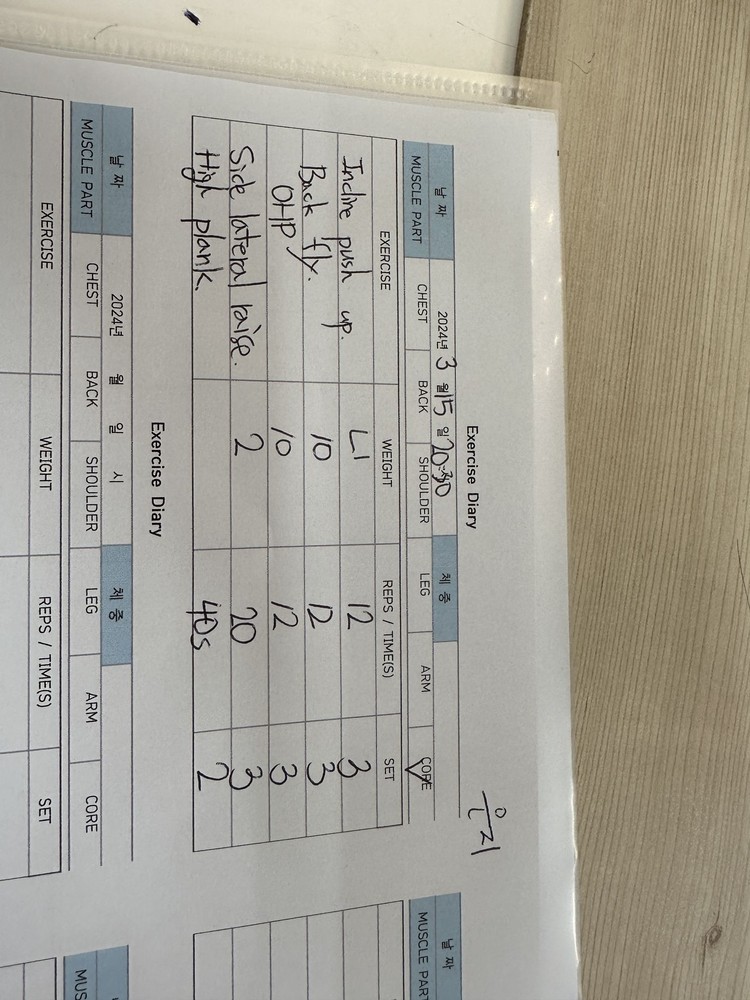 Exercise Diary
윤지
날 짜 2024년 3월 15일 20시 30 체 중
MUSCLE PART CHEST BACK SHOULDER LEG ARM CORE
EXERCISE WEIGHT REPS / TIME(S) SET
Incline push up. L1 12 3
Back fly. 10 12 3
OHP 10 12 3
Side lateral raise. 2 20 3
High plank. 40s 2
Exercise Diary
날 짜 2024년 월 일 시 체 중
MUSCLE PART CHEST BACK SHOULDER LEG ARM CORE
EXERCISE WEIGHT REPS / TIME(S) SET
날 짜
MUSCLE PART
MUS